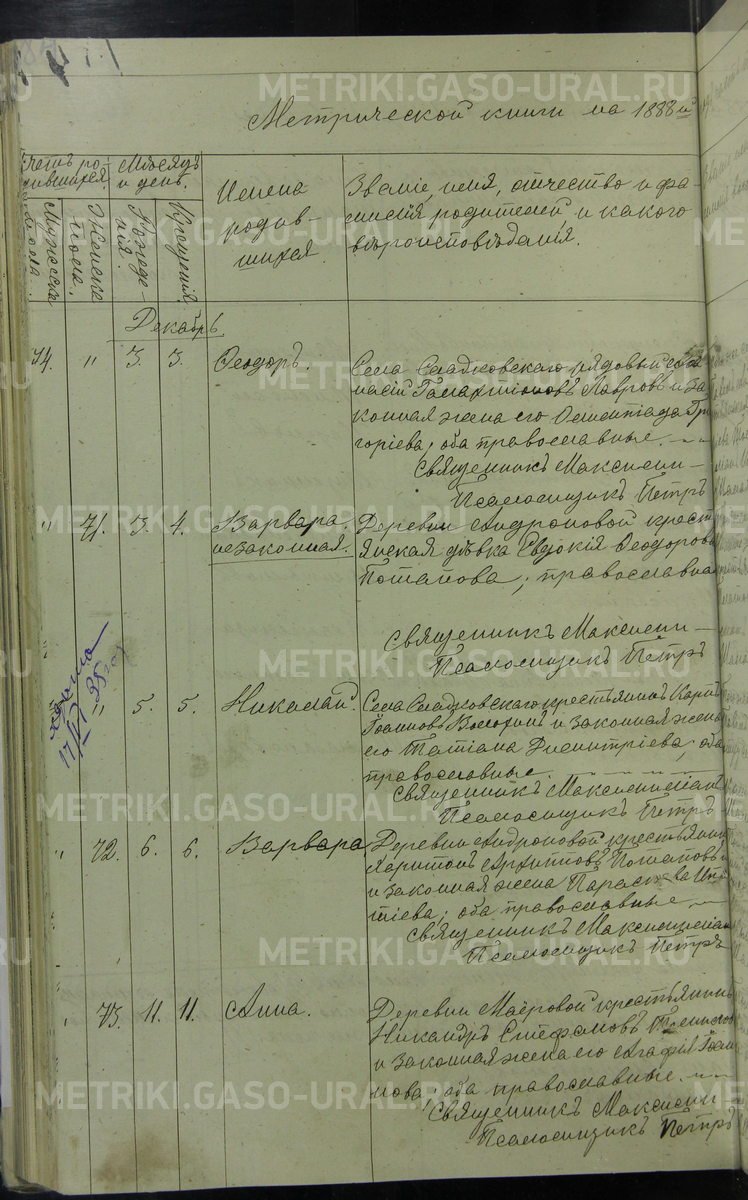 METRIKI.GASO-URAL.RU
Метрической книги на 1888й
Счетъ ро-
дившихся.
Мѣсяцъ
и день.
Мужеска
пола.
Женска
пола.
Рожде-
нія.
Крещенія.
Имена
родив-
шихся.
Званіе, имя, отчество и фа-
милія родителей и какого
вѣроисповѣданія.
Декабрь
74. " 3. 3. Ѳеодоръ.
Села Сладковскаго рядовый
Лавровъ и за
конная жена его Гри
горіева; оба православные.
Священникъ Максими-
Псаломщикъ Петръ
" 71. 3. 4. Варвара.
незаконная.
Деревни Андроновой крест
янская дѣвка Евдокія Ѳеодорова
Потапова; православна
Священникъ Максими-
Псаломщикъ Петръ
" 5. 5. Николай.
Села Сладковскаго крестьянинъ Карпъ
Іоанновъ и законная жена
его Татіана Димитріева, оба
православные.
Священникъ Максимиліанъ
Псаломщикъ Петръ
" 72. 6. 6. Варвара
Деревни Андроновой крестьянинъ
Харитонъ Потаповъ
и законная жена Параскева
тіева; оба православные
Священникъ Максимиліан
Псаломщикъ Петръ
" 73. 11. 11. Анна.
Деревни Маіровой крестьянинъ
Никандръ Стефановъ
и законная жена его Агафія Іоан
нова; оба православные.
Священникъ Максими
Псаломщикъ Петръ